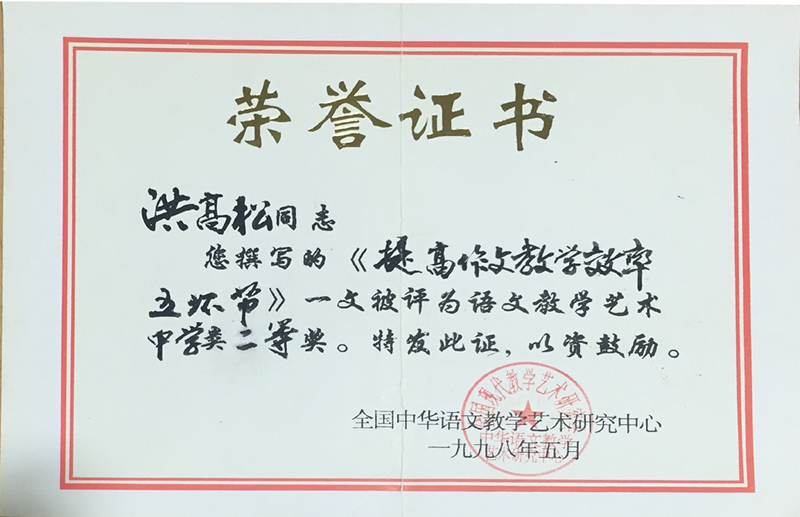 荣誉证书
洪高松同志
您撰写的《提高作文教学效率
五环节》一文被评为语文教学艺术
中学类二等奖。特发此证，以资鼓励。
全国中华语文教学艺术研究中心
一九九八年五月
中华语文教学
艺术研究中心